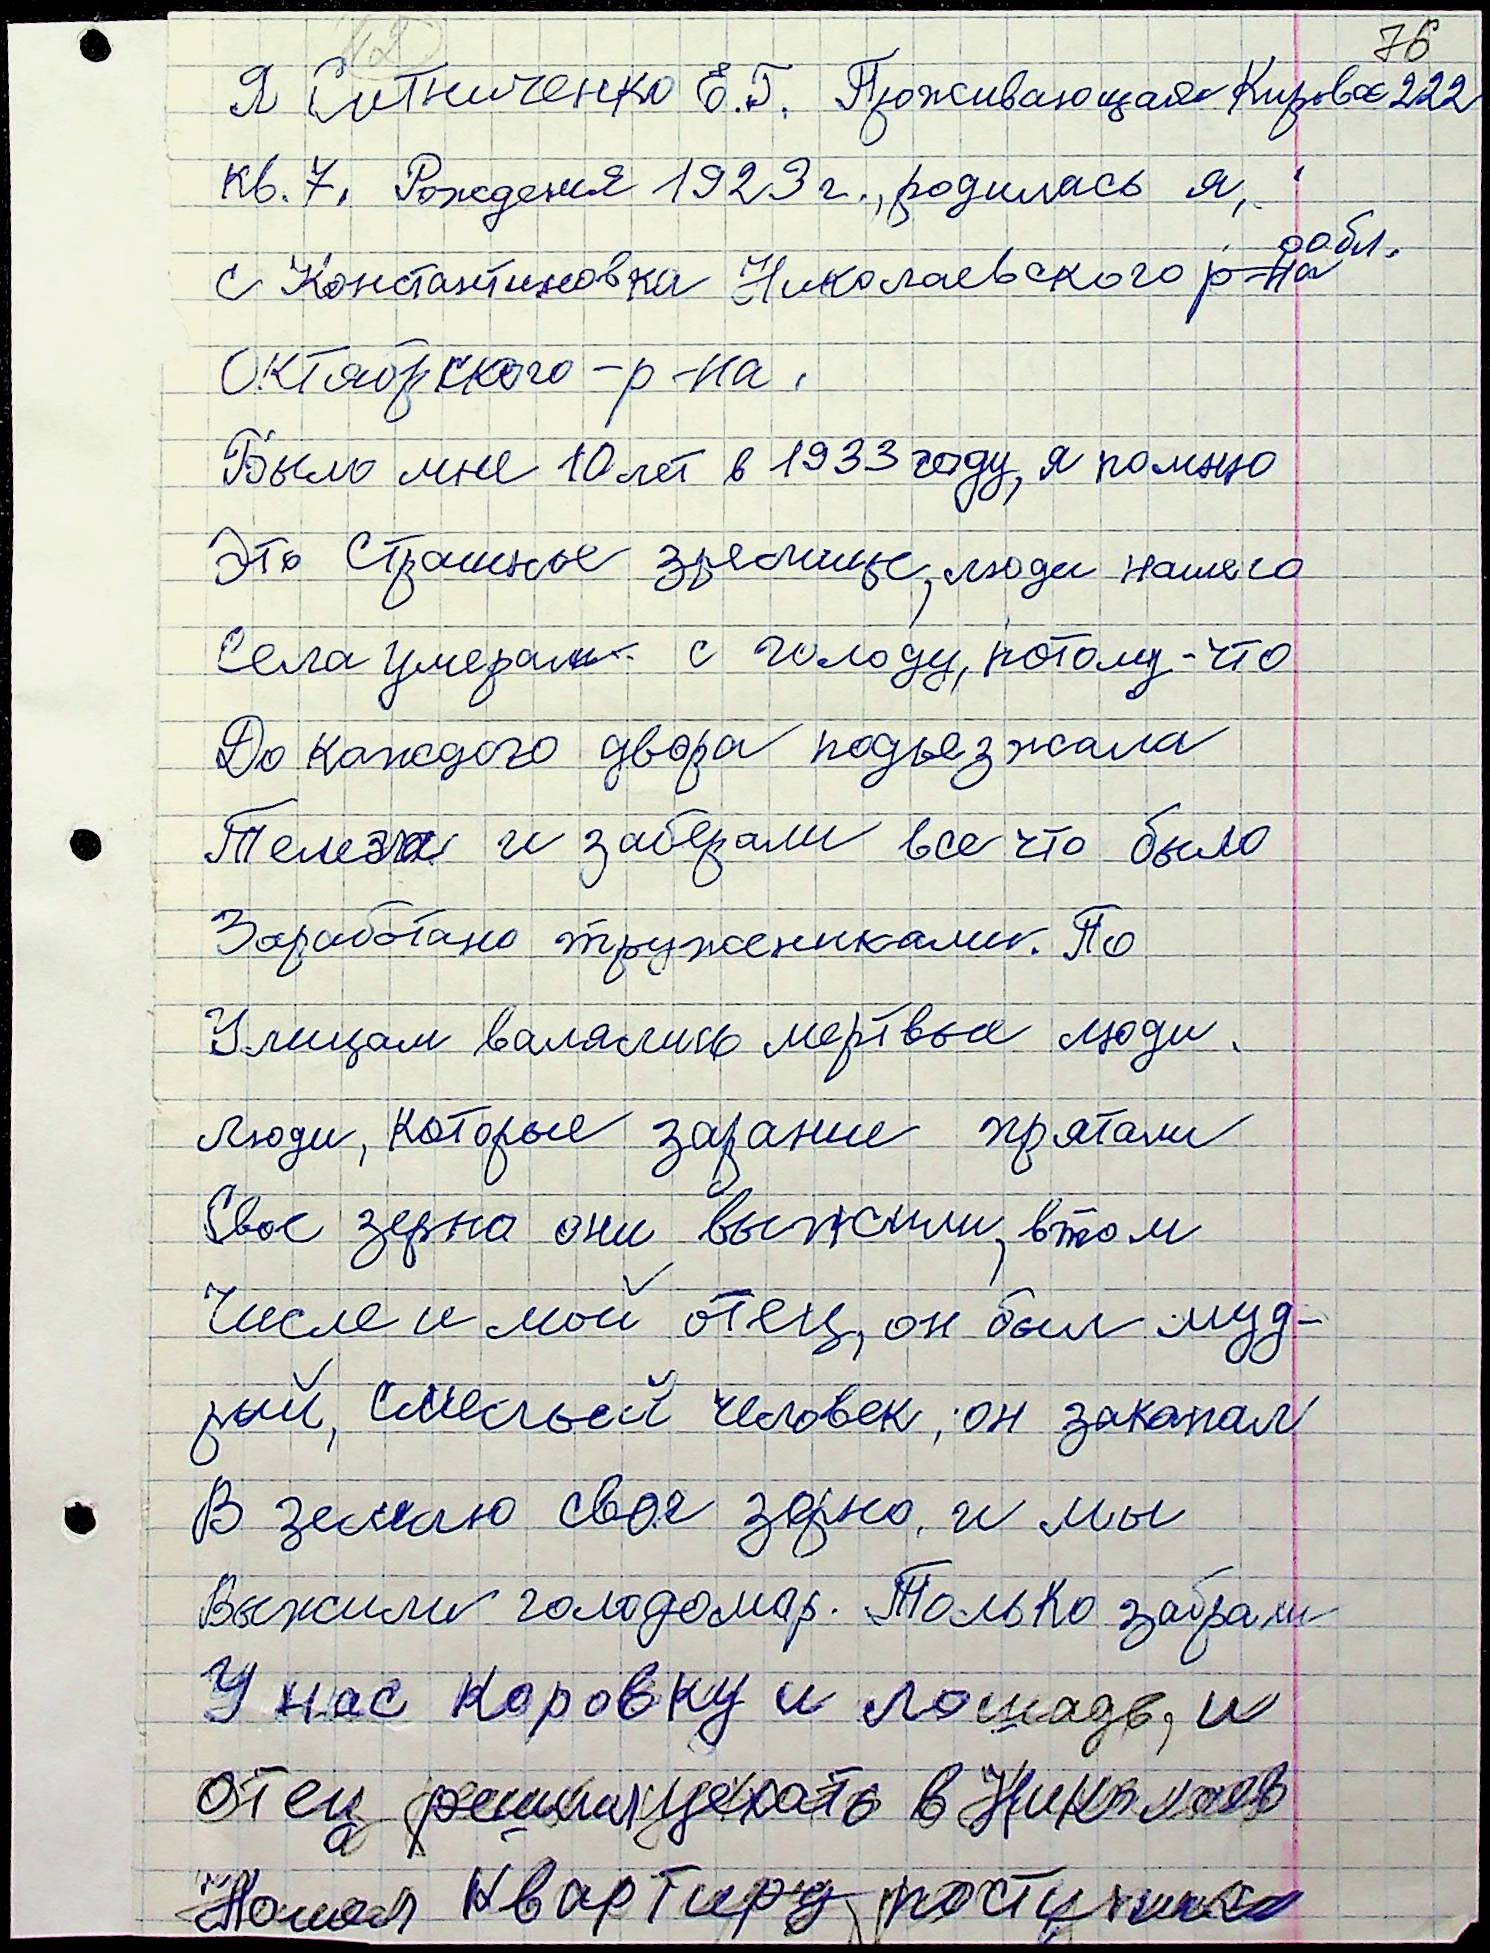 12
76
Я Ситниченко Е.Г. Проживающая Кирова 222
кв. 7. Рождения 1923 г., родилась я,
обл.
с Константиновка Николаевского р-на
Октябрского -р-на.
Было мне 10 лет в 1933 году, я помню
Это Страшное зрелище, люди нашего
Села умерали с голоду, потому-что
До каждого двора подьезжала
Телега и заберали все что было
Заработано тружениками. По
Улицам валялись мертвые люди.
люди, которые зарание прятали
Свое зерно они выжили, втом
Числе и мой отец, он был муд-
рый, смелый человек, он закапал
В землю свое зерно, и мы
Выжили голодомор. Только забрали
У нас коровку и лошадь, и
отец решил уехать в Николаев
Нашол квартиру, поступил